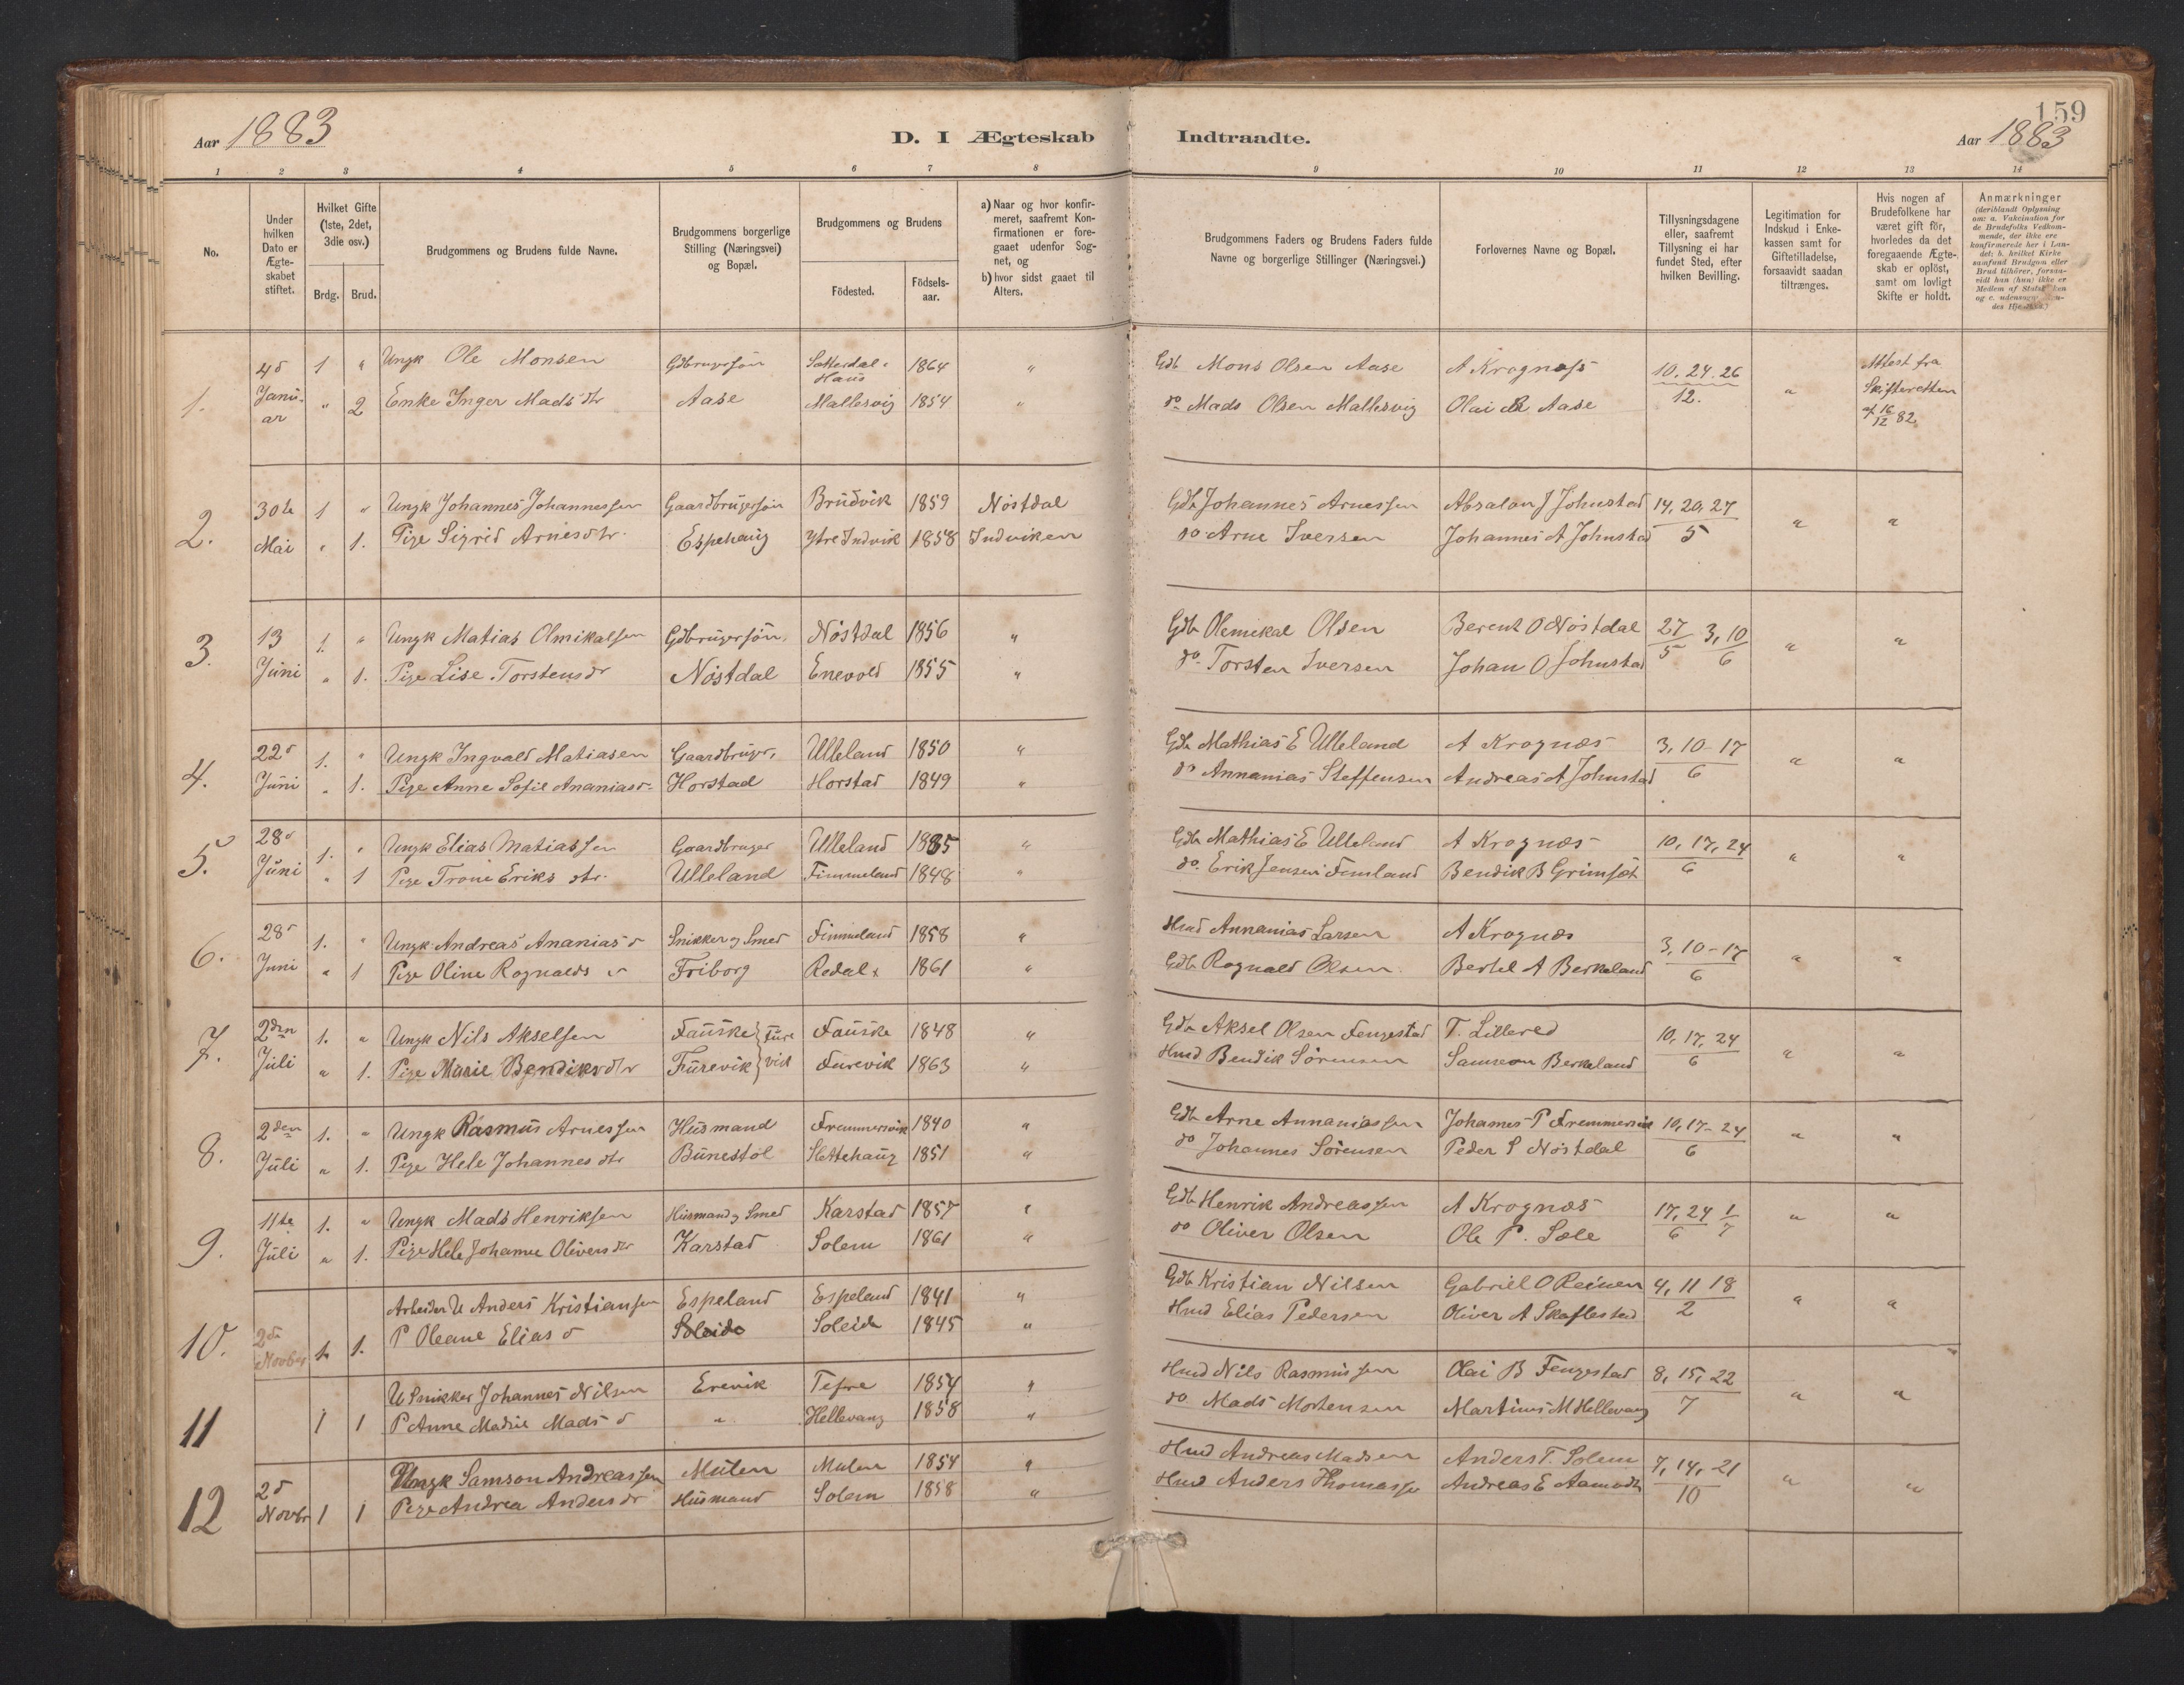 Aar 1883
D. I Ægteskab Indtraadte.
159
Aar 1883
1 2 3 4 5 6 7 8 9 10 11 12 13 14
No.
Under hvilken Dato er Ægte-skabet stiftet.
Hvilket Gifte (1ste, 2det, 3die osv.)
Brdg. Brud.
Brudgommens og Brudens fulde Navne.
Brudgommens borgerlige Stilling (Næringsvei) og Bopæl.
Brudgommens og Brudens
Födested. Födsels-aar.
a) Naar og hvor konfir-meret, saafremt Kon-firmationen er fore-gaaet udenfor Sog-net, og
b) hvor sidst gaaet til Alters.
Brudgommens Faders og Brudens Faders fulde Navne og borgerlige Stillinger (Næringsvei.)
Forlovernes Navne og Bopæl.
Tillysningsdagene eller, saafremt Tillysning ei har fundet Sted, efter hvilken Bevilling.
Legitimation for Indskud i Enke-kassen samt for Giftetilladelse, forsaavidt saadan tiltrænges.
Hvis nogen af Brudefolkene har været gift för, hvorledes da det foregaaende Ægte-skab er oplöst, samt om lovligt Skifte er holdt.
Anmærkninger
(deriblandt Oplysning om: a. Vakcination for de Brudefolks Vedkom-mende, der ikke ere konfirmerede her i Lan-det; b. hvilket Kirke samfund Brudgom eller Brud tilhörer, forsaa-vidt han (hun) ikke er Medlem af
1. 4d Janu-ar 1 " Ungk. Ole Monsen Gdbrugersön 1864 " Gdb Mons Olsen Aase A Krognæss 10. 24. 26 / 12. " Attest fra Skifteretten af 16/12 82
" 2 Enke Inger Mads dtr Aase Mallesvig 1854 " do Mads Olsen Mallesvig Olai B Aase
2. 30te Mai 1 " Ungk Johannes Johannessen Gaardbrugersön Brudvik 1859 Nöstdal Gdb Johannes Arnessen Absalon J Johnstad 14, 20, 27 / 5 " "
" 1. Pige Sigrid Arnesdtr. Espehaug Ytre Indvik 1858 Indviken do Arne Iversen Johannes A Johnstad
3. 13 Juni 1. " Ungk Matias Olmikalsen Gdbrugersön. Nöstdal 1856 " Gdb Olemikal Olsen Berent O Nöstdal 27/5 3, 10/6 " "
" 1. Pige Lise Torstensdr Nöstdal Enevold 1855 " do. Torsten Iversen Johan O Johnstad
4. 22d Juni 1. " Ungk Ingvald Matiasen Gaardbruger, Ulleland 1850 " Gdb Mathias E Ulleland A Krognæs 3, 10-17 / 6 " "
" 1. Pige Anne Sofie Ananiasd. Horstad Horstad 1849 " do Annanias Steffensen Andreas A Johnstad
5. 28d Juni 1. " Ungk Elias Matiassen Gaardbruger Ulleland " Gdb Mathias E Ulleland A Krognæs 10, 17, 24 / 6 " "
" 1 Pige Trone Eriks dtr. Ulleland Fimmeland 1848 " do. Erik Jensen Femland Bendik B Grimset
6. 28d Juni 1. " Ungk Andreas Ananias d Snikker og Smed Fimmeland 1858 " Hmd Annanias Larsen A Krognæs 3, 10-17 / 6 " "
" 1 Pige Oline Rognalds d Friborg Redal 1861 " Gdb Rognald Olsen Bertel A Berkeland
7. 2den Juli 1. " Ungk Nils Akselsen Fauske Fure Fauske 1848 " Gdb Aksel Olsen Fengestad T. Lillered 10, 17, 24 / 6 " "
" 1. Pige Marie Bendiksdtr Furevik vik Furevik 1863 " Hmd Bendik Sörensen Samson Berkeland
8. 2den Juli 1. " Ungk Rasmus Arnessen Husmand Fremmersvik 1840 " Gdb Arne Annaniassen Johannes P Fremmersvik 10, 17-24 / 6 " "
" 1. Pige Hele Johannes dtr Bunestöl Slettehaug 1851 " do Johannes Sörensen Peder S Nöstdal
9. 11te Juli 1. " Ungk Mads Henriksen Husmand og Smed Karstad 1857 " Gdb Henrik Andreassen A Krognæs 17, 24/6 1/7 " "
" 1. Pige Hele Johanne Olivers dtr Karstad Solem 1861 " do Oliver Olsen Ole P. Sæle
10. 2d Novbr 1. 1. Arbeider U Anders Kristiansen Espeland Espeland 1841 " Gdb Kristian Nilsen Gabriel O Reinen 4, 11 18 / 2 " "
P Oleane Elias d Soleide Soleide 1845 " Hmd Elias Pedersen Oliver A Skaflestad
11 1 1 U Snikker Johannes Nilsen Erevik Tefre 1854 " Hmd Nils Rasmussen Olai B Fengestad 8, 15, 22 / 7 " "
P Anne Madsie Mads d " Hellevang 1858 " do Mads Mortensen Martinus M Hellevang
12 2d Novbr 1 1 Ungk Samson Andreassen Mulen Mulen 1854 " Hmd Andreas Madsen Anders T. Solem 7, 14, 21 / 10 " "
Pige Andrea Anders dr Husmand Solem 1858 " Hmd Anders Thomassen Andreas E Aamodt